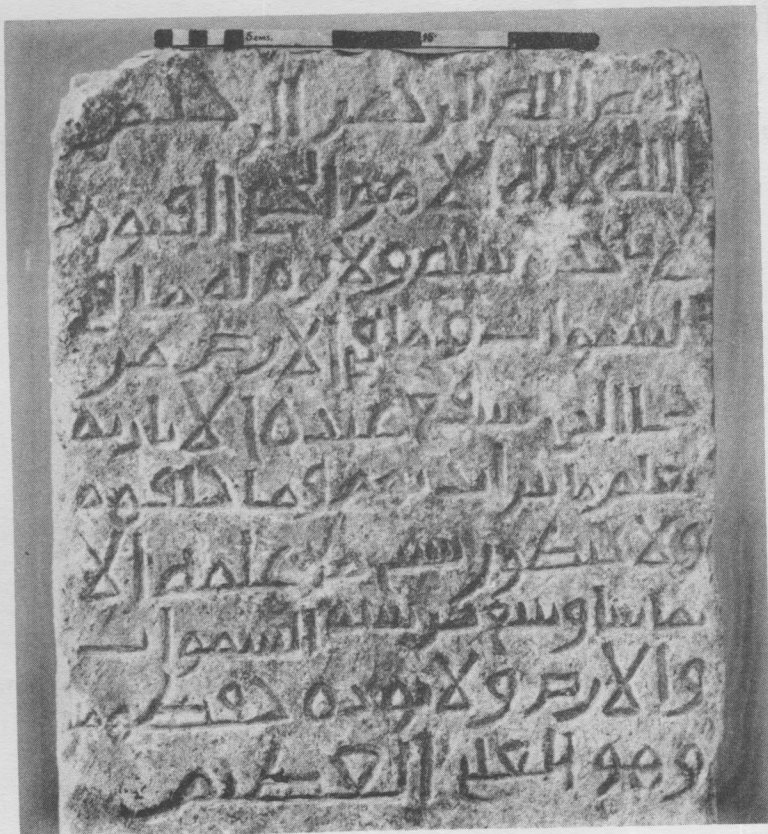 5 cms. 10
بسم الله الرحمن الرحيم
الله لا اله الا هو الحي القيوم
لا تاخذه سنة ولا نوم له ما في ا
لسموات وما في الارض من
ذا الذي يشفع عنده الا باذنه
يعلم ما بين ايديهم وما خلفهم
ولا يحيطون بشي من علمه الا
بما شا وسع كرسيه السموات
والارض ولا يوده حفظهما
وهو العلي العظيم